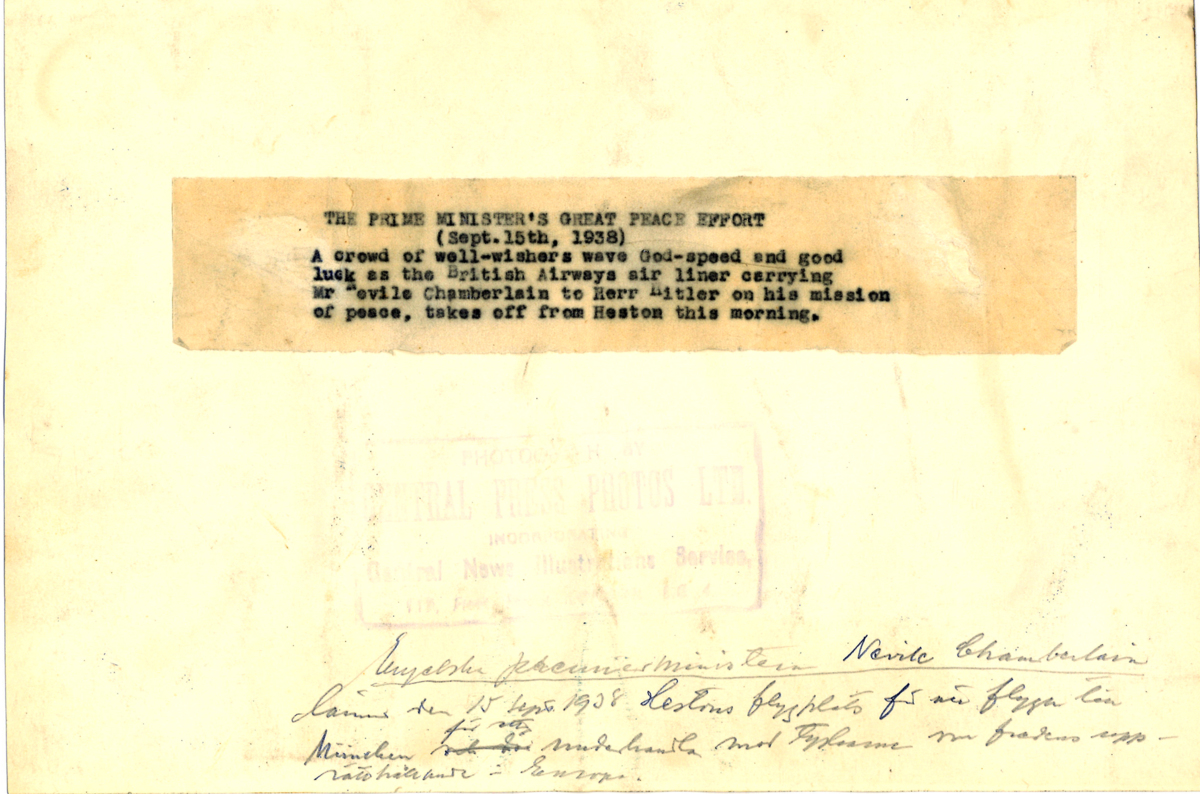 THE PRIME MINISTER'S GREAT PEACE EFFORT
(Sept.15th, 1938)
A crowd of well-wishers wave God-speed and good
luck as the British Airways air liner carrying
Mr Nevile Chamberlain to Herr Hitler on his mission
of peace, takes off from Heston this morning.
PHOTOGRAPH BY
CENTRAL PRESS PHOTOS LTD.
INCORPORATING
Central News Illustrations Service,
Engelska premierministern Nevile Chamberlain
lämnar den 15 sept. 1938 Hestons flygplats för att flyga till
för att
München underhandla med Tyskarna om fredens upp-
rätthållande i Europa.